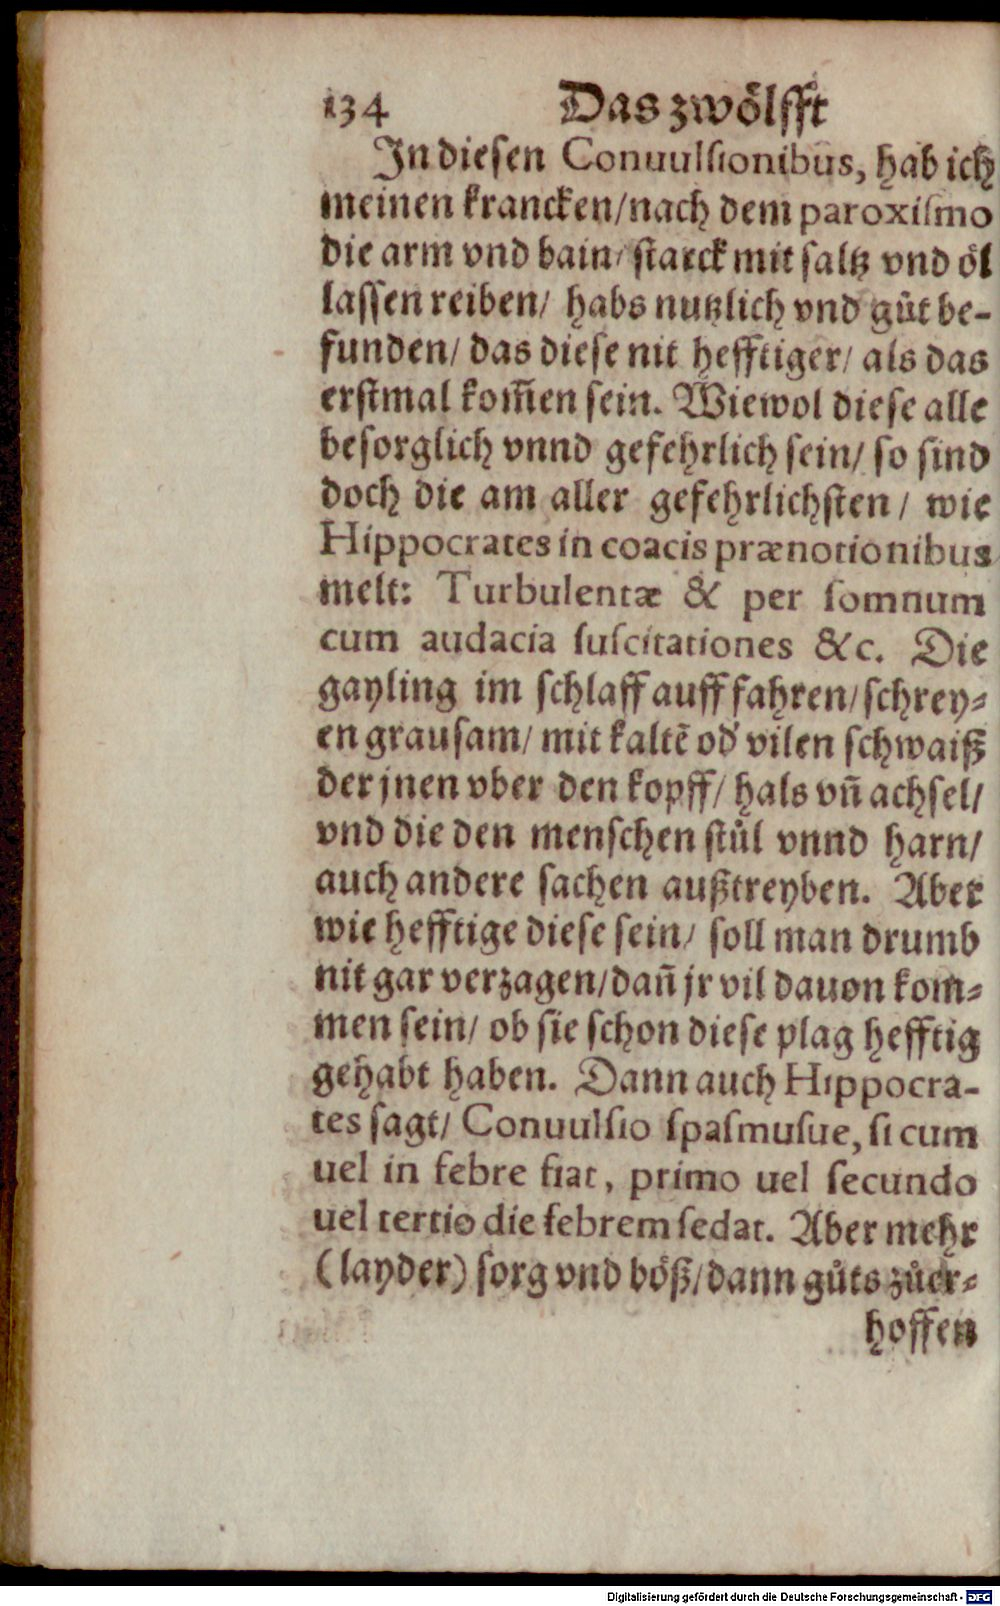 134 Das zwölfft
In diesen Conuulsionibus, hab ich
meinen krancken/nach dem paroxismo
die arm vnd bain/ starck mit saltz vnd öl
lassen reiben/ habs nutzlich vnd gůt be-
funden/ das diese nit hefftiger/ als das
erstmal kom̃en sein. Wiewol diese alle
besorglich vnnd gefehrlich sein/ so sind
doch die am aller gefehrlichsten / wie
Hippocrates in coacis prænotionibus
melt: Turbulentæ & per somnum
cum audacia suscitationes &c. Die
gayling im schlaff auff fahren/schrey-
en grausam/ mit kaltẽ od' vilen schwaiß
der jnen vber den kopff/ hals vñ achsel/
vnd die den menschen stůl vnnd harn/
auch andere sachen außtreyben. Aber
wie hefftige diese sein/ soll man drumb
nit gar verzagen/dañ jr vil dauon kom-
men sein/ ob sie schon diese plag hefftig
gehabt haben. Dann auch Hippocra-
tes sagt/ Conuulsio spasmusue, si cum
uel in febre fiat, primo uel secundo
uel tertio die febrem sedat. Aber mehr
(layder) sorg vnd böß/dann gůts zůer-
hoffen
Digitalisierung gefördert durch die Deutsche Forschungsgemeinschaft - DFG